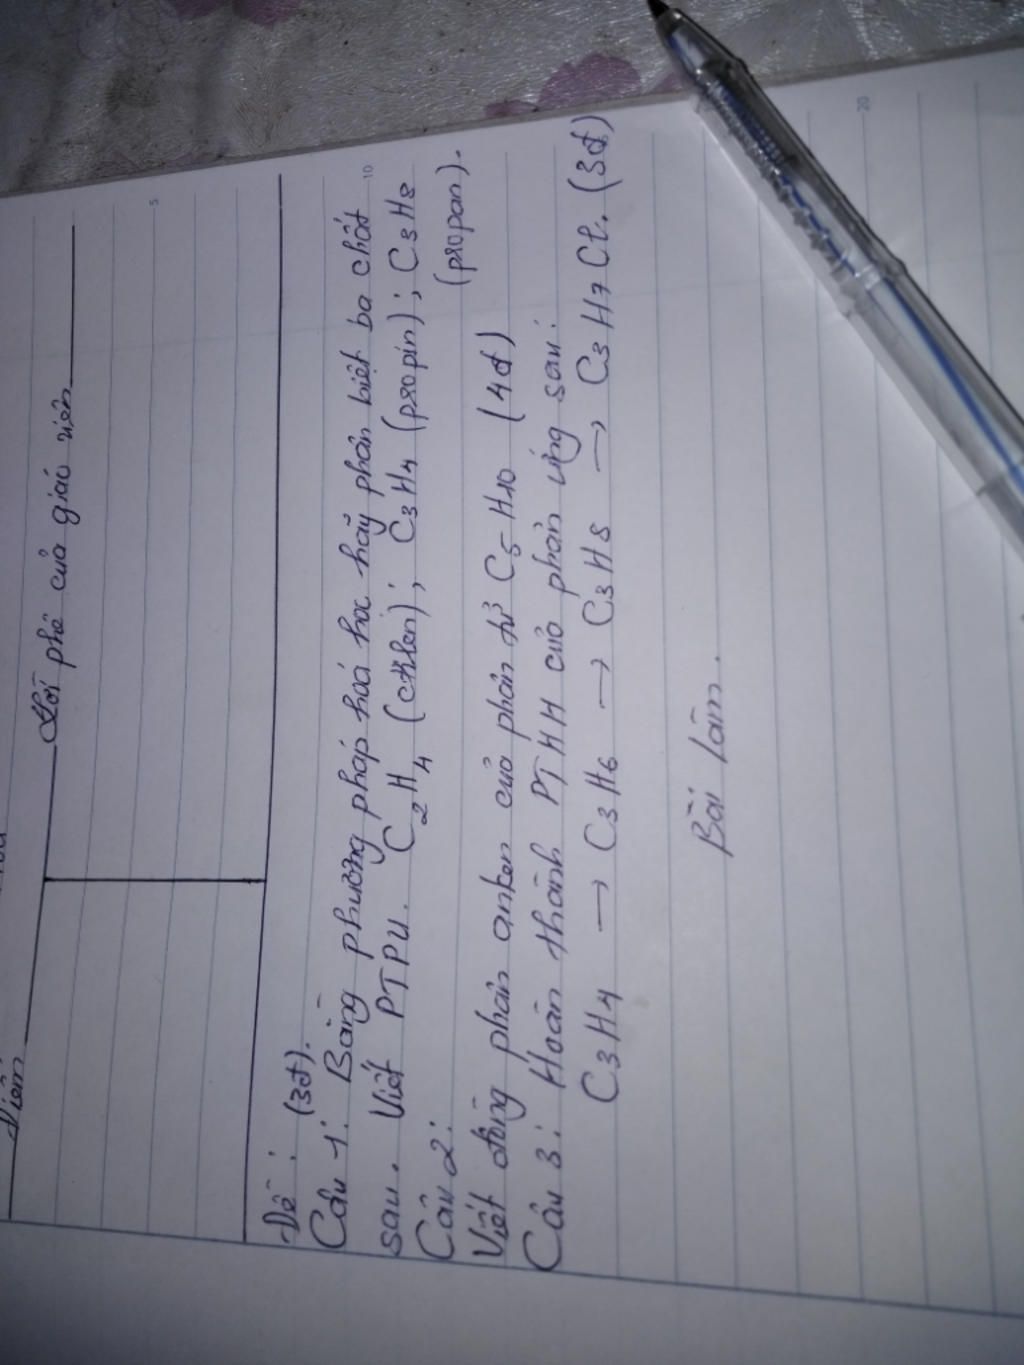 Điểm
Lời phê của giáo viên
Đề :
(3đ).
Câu 1: Bằng phương pháp hoá học hãy phân biệt ba chất
sau. Viết PTPU. C2H4 (etilen); C3H4 (propin); C3H8
(propan).
Câu 2:
Viết đồng phân anken của phân tử C5H10 (4đ)
Câu 3: Hoàn thành PTHH của phản ứng sau:
C3H4 → C3H6 → C3H8 → C3H7Cl. (3đ)
Bài làm.
5
10
20